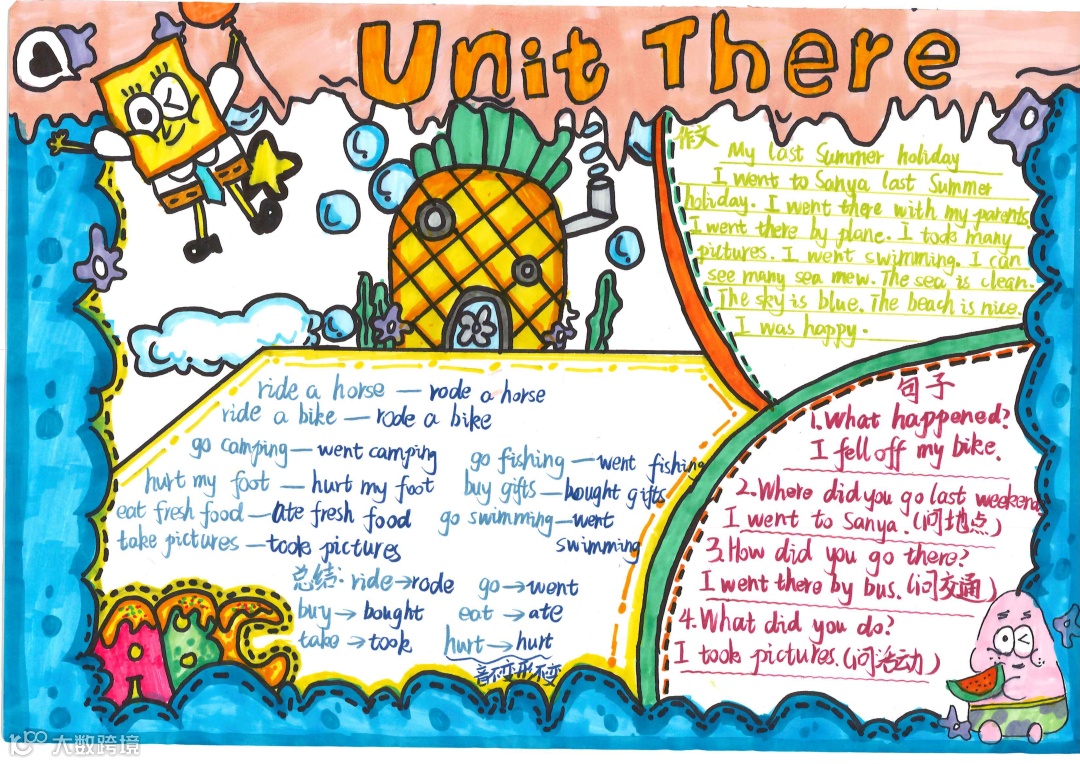 Unit There
作文
My last Summer holiday
I went to Sanya last Summer
holiday. I went there with my parents
I went there by plane. I took many
pictures. I went swimming. I can
see many sea mew. The sea is clean.
The sky is blue. The beach is nice.
I was happy.
ride a horse — rode a horse
ride a bike — rode a bike
go camping — went camping
go fishing — went fishing
hurt my foot — hurt my foot
buy gifts — bought gifts
eat fresh food — ate fresh food
go swimming — went
swimming
take pictures — took pictures
总结: ride → rode go → went
buy → bought eat → ate
take → took hurt → hurt
音不变形不变
句子
1. What happened?
I fell off my bike.
2. Where did you go last weekend
I went to Sanya. (问地点)
3. How did you go there?
I went there by bus. (问交通)
4. What did you do?
I took pictures. (问活动)
ABC
大数跨境